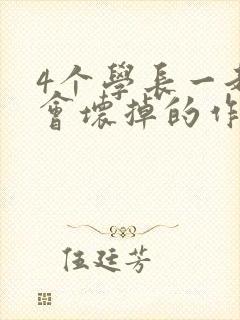 4个學長一
會壞掉的作
伍廷芳